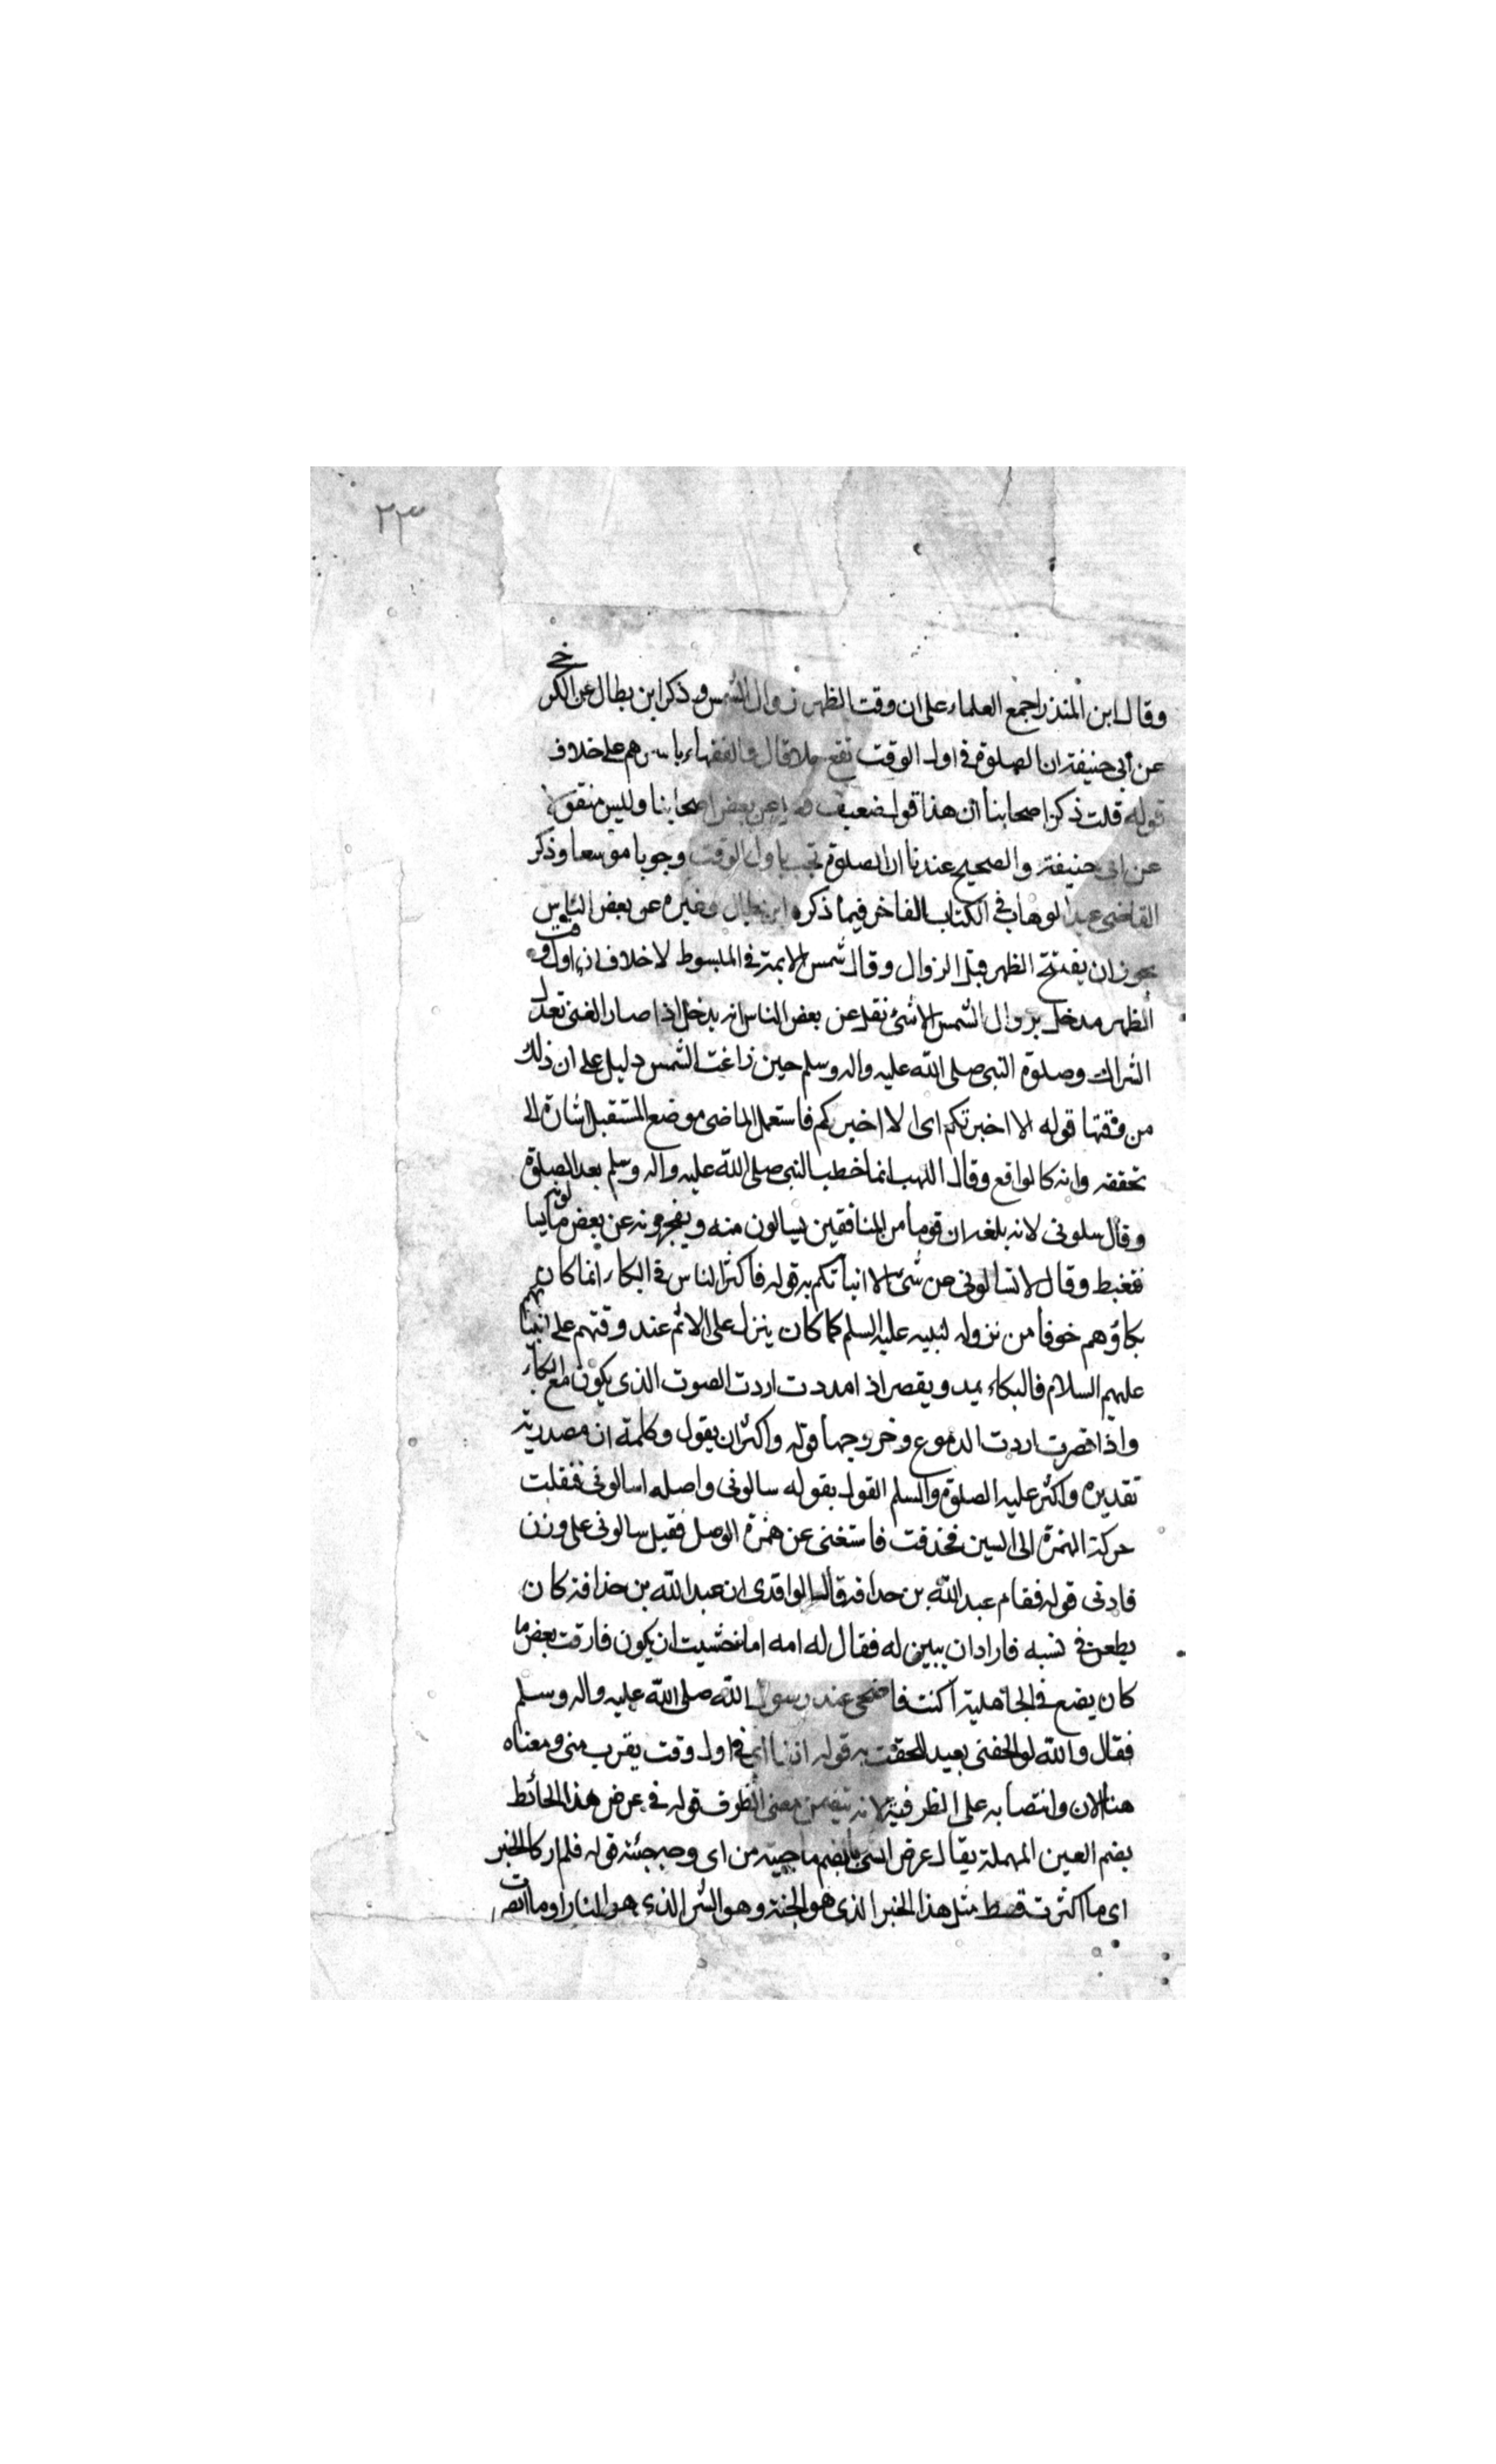 ٢٣
وقال ابن المنذر اجمع العلماء على ان وقت الظهر زوال الشمس وذكر ابن بطال عن الكرخي
عن ابي حنيفة ان الصلوة في اول الوقت تقع نفلا قال والفقهاء باسرهم على خلاف
قوله قلت ذكر اصحابنا ان هذا قول ضعيف عن بعض اصحابنا وليس منقولا
عن ابي حنيفة والصحيح عندنا ان الصلوة تجب باول الوقت وجوبا موسعا وذكر
القاضي عبد الوهاب في الكتاب الفاخر فيما ذكره ابن بطال وغيره عن بعض الناس
يجوز ان يفتتح الظهر قبل الزوال وقال شمس الايمة في المبسوط لا خلاف ان اول وقت
الظهر مدخل بزوال الشمس الا شئ نقل عن بعض الناس انه يدخل اذا صار الفئ بقدر
الشراك وصلوة النبي صلى الله عليه واله وسلم حين زاغت الشمس دليل على ان ذلك
من وقتها قوله الا اخبرتكم اى الا اخبركم فاستعمل الماضى موضع المستقبل اشارة الى
تحققه وانه كالواقع وقال المهلب انما خطب النبي صلى الله عليه واله وسلم بعد الصلوة
وقال سلونى لانه بلغه ان قوما من المنافقين يسالون منه ويعجزونه عن بعض ما يسالونه
فغبط وقال لا تسالونى عن شئ الا انباتكم به قوله فاكثر الناس في البكاء انما كان
بكاؤهم خوفا من نزوله لنبيه عليه السلم كما كان ينزل على الاثم عند وقتهم على انبيائهم
عليهم السلام فالبكاء يمد ويقصر اذ امددت اردت الصوت الذى يكون مع البكاء
واذا قصرت اردت الدموع وخروجها قوله واكثر ان يقول وكلمة ان مصدرية
تقديره واكثر عليه الصلوة والسلم القول بقوله سالونى واصله اسالونى فنقلت
حركة الهمزة الى السين فحذفت فاستغنى عن همزة الوصل فقيل سالونى على وزن
فادنى قوله فقام عبد الله بن حذافة قال الواقدى ان عبد الله بن حذافة كان
يطعن في نسبه فاراد ان يبين له فقال له امه اما خشيت ان يكون فارقت بعض ما
كان يضع في الجاهلية اكنت فاضحى عند رسول الله صلى الله عليه واله وسلم
فقال والله لو الحقنى بعبد للحقت به قوله انفا اى في اول وقت يقرب منى ومعناه
هنا الان وانتصابه على الظرفية لانه يتضمن معنى الظرف قوله في عرض هذا الحائط
بضم العين المهملة يقال عرض الشئ بالضم من اى وجه جئته قوله فلم ار كالخير
اى ما اكثرت قط مثل هذا الخير الذى هو الجنة وهو الشر الذى هو النار او ما ابصرت